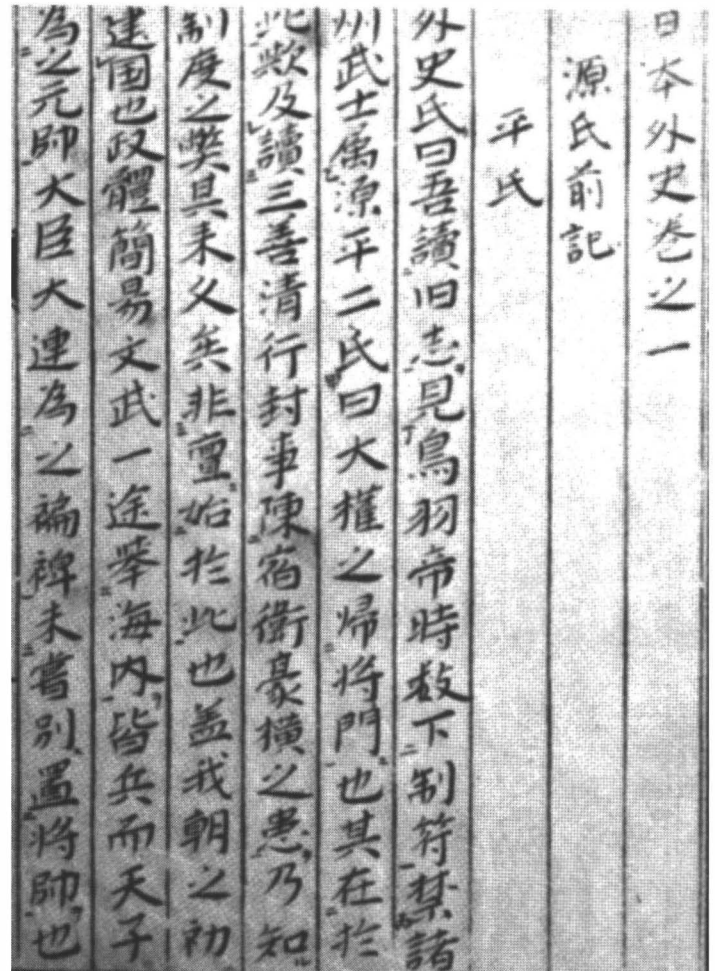 日本外史巻之一
源氏前記
平氏
外史氏曰吾讀旧志見鳥羽帝時数下制符禁諸
州武士属源平二氏曰大権之帰将門也其在於
此歟及讀三善清行封事陳宿衛豪横之患乃知
制度之弊其来久矣非亶始於此也盖我朝之初
建国也政體簡易文武一途挙海内皆兵而天子
為之元帥大臣大連為之褊裨未嘗別置将帥也